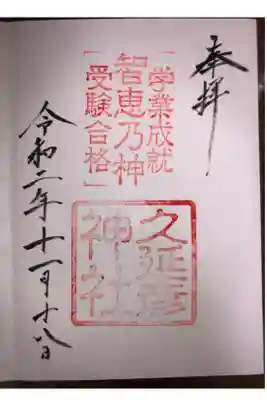 奉拝
「学業成就
智恵乃神
受験合格」
久延彦
神社
令和二年十一月十八日